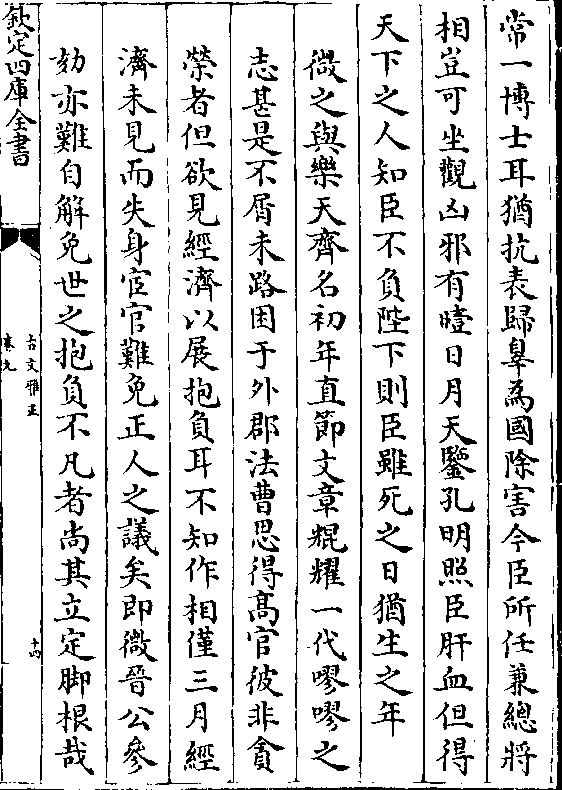 常一博士耳猶抗表歸辠為國除害今臣所任兼總將
相豈可坐觀凶邪有曀日月天鑒孔明照臣肝血但得
天下之人知臣不負陛下則臣雖死之日猶生之年
微之與樂天齊名初年直節文章焜耀一代嘐嘐之
志甚是不屑末路困于外郡法曹思得髙官彼非貪
榮者但欲見經濟以展抱負耳不知作相僅三月經
濟未見而失身宦官難免正人之議矣即微晉公參
劾亦難自解免世之抱負不凡者尚其立定脚根哉
欽定四庫全書
古文雅正
卷九
十四